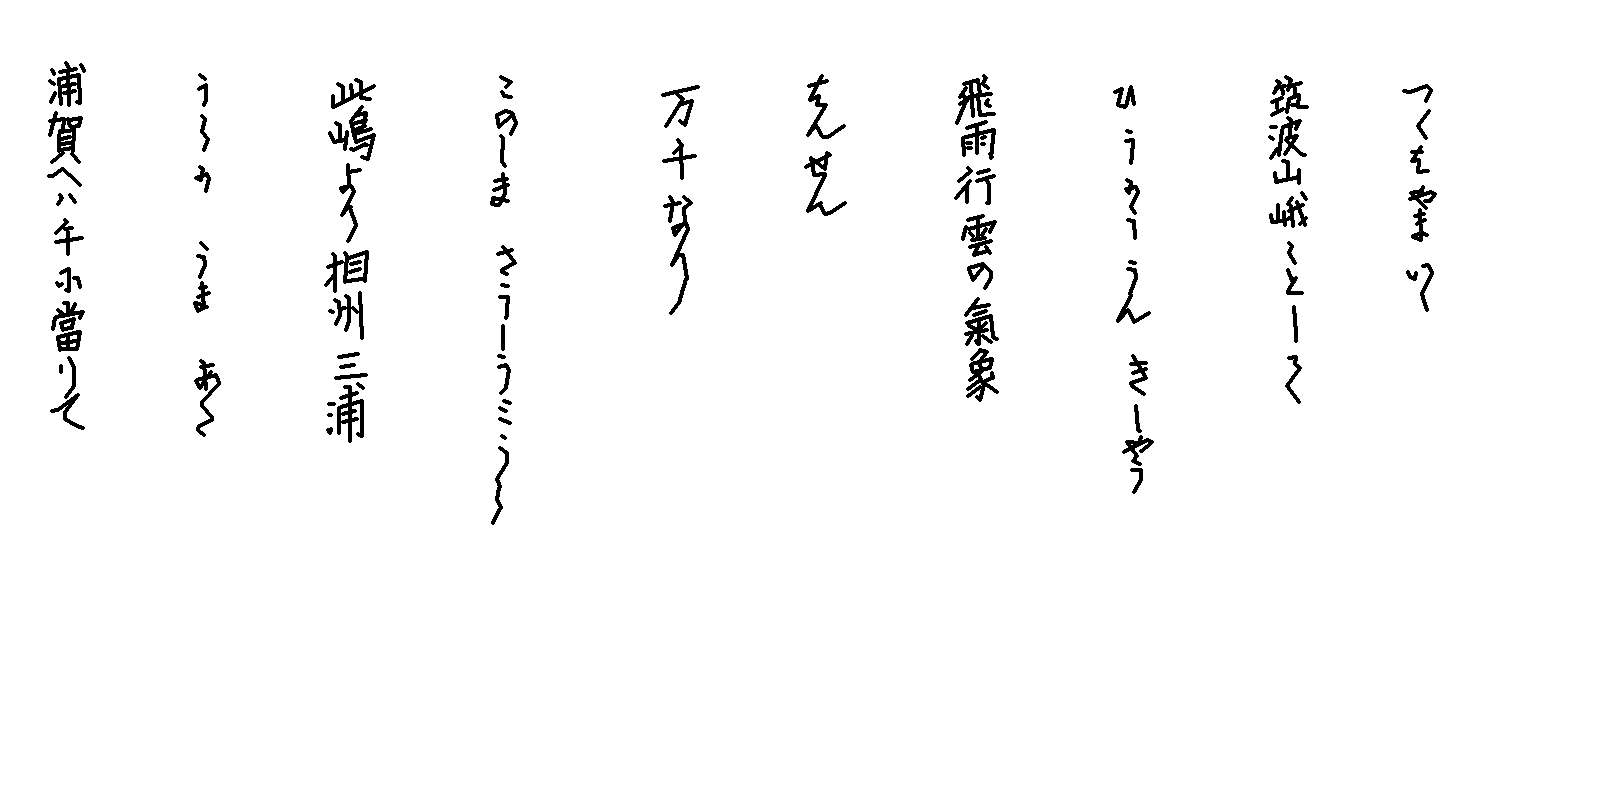 つくはやま か〱
筑波山峨〻として
ひうかううん きしやう
飛雨行雲の氣象
はんせん
万千なり
このしま さうしうミうら
此嶋より相州三浦
うらか うま あた
浦賀へハ午に當りて